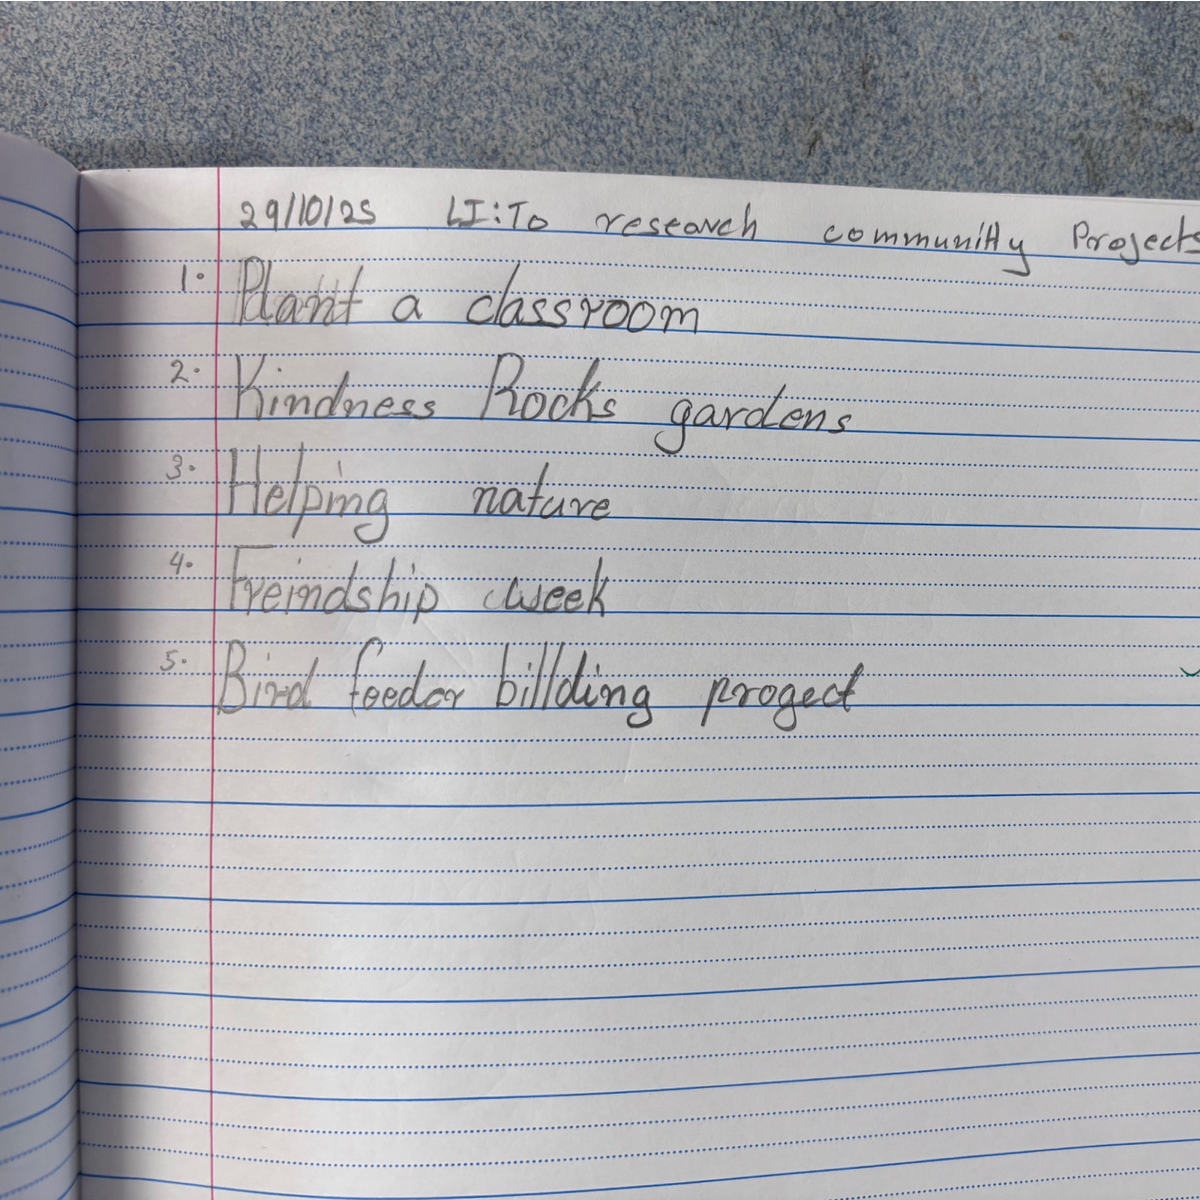 29/10/25 LI: To research community Projects
1. Plant a classroom
2. Kindness Rocks gardens
3. Helping nature
4. Freindship week
5. Bird feeder billding progect